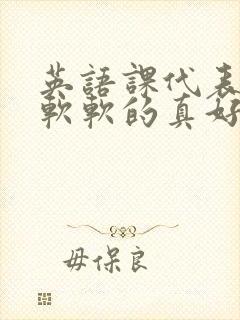 英語課代表
軟軟的真好
毋保良